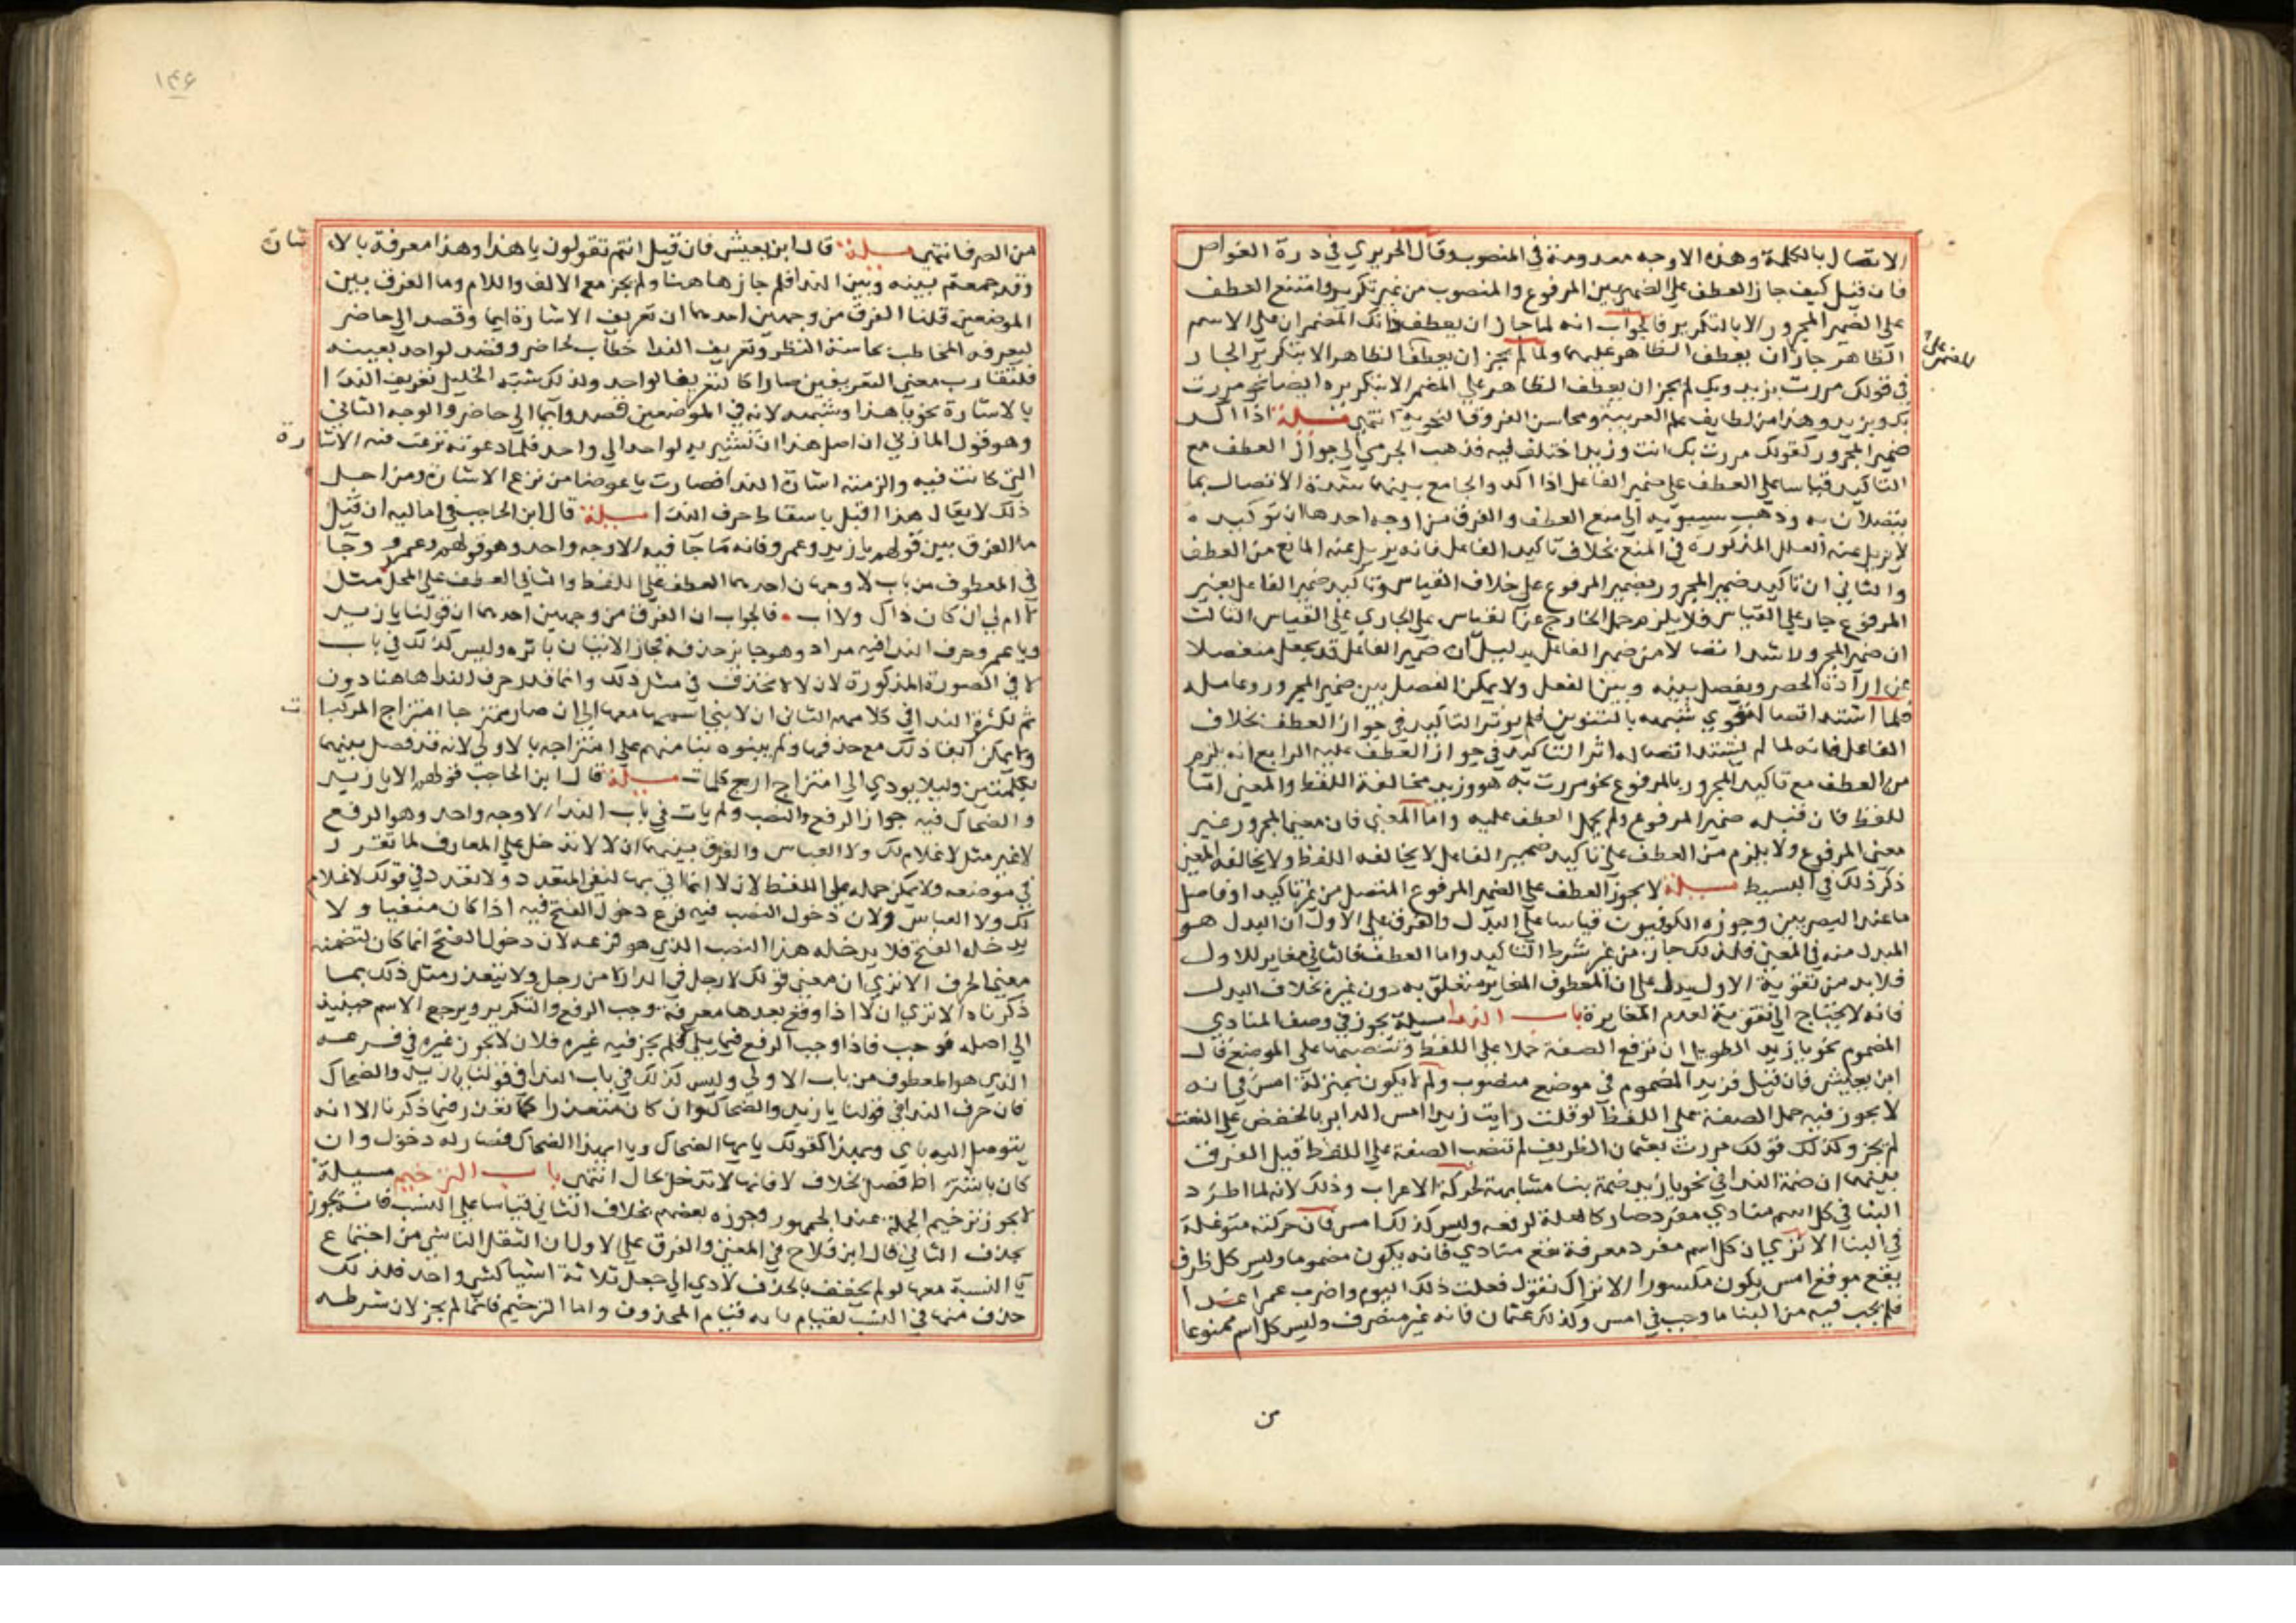 الاتصال بالكلمة وهذه الاوجه معدومة في المنصوب وقال الحريري في درة الغواص
فان قيل كيف جاز العطف على الضميرين المرفوع والمنصوب من غير تكرير وامتنع العطف
على الضمير المجرور الا بالتكرير فالجواب انه لما جاز ان يعطف ذانك المضميران على الاسم
الظاهر جاز ان يعطف الظاهر عليهما ولما لم يجز ان يعطف الظاهر الا بتكرير الجار
المضمر على
في قولك مررت بزيد وبك لم يجز ان يعطف الظاهر على المضمر الا بتكريره ايضا نحو مررت
بك وبزيد وهذا من لطايف علم العربية ومحاسن الفروق النحوية انتهى مسيلة اذا اكد
ضمير المجرور كقولك مررت بك انت وزيد اختلف فيه فذهب الجرمي الى جواز العطف مع
التاكيد قياسا على العطف على ضمير الفاعل اذا اكد والجامع بينهما شدة الاتصال بما
يتصلان به وذهب سيبويه الى منع العطف والفرق من اوجه احدها ان توكيده
لا يزيل عنه العلل المذكورة في المنع بخلاف تاكيد الفاعل فانه يزيل عنه المانع من العطف
والثاني ان تاكيد ضمير المجرور بضمير المرفوع على خلاف القياس وتاكيد ضمير الفاعل بضمير
المرفوع جار على القياس فلا يلزم حمل الخارج عن القياس على الجاري على القياس الثالث
ان ضمير المجرور اشد اتصالا من ضمير الفاعل بدليل ان ضمير الفاعل قد يجعل منفصلا
عن ارادة الحصر ويفصل بينه وبين الفعل ولا يمكن الفصل بين ضمير المجرور وعامله
فلما اشتد اتصاله قوي شبهه بالتنوين فلم يوثر التاكيد في جواز العطف بخلاف
الفاعل فانه لما لم يشتد اتصاله اثر التاكيد في جواز العطف عليه الرابع انه يلزم
من العطف مع تاكيد المجرور بالمرفوع نحو مررت به هو وزيد مخالفة اللفظ والمعنى اما
اللفظ فان قبله ضمير المرفوع ولم يحمل العطف عليه واما المعنى فان معنى المجرور غير
معنى المرفوع ولا يلزم من العطف على تاكيد ضمير الفاعل لا يخالفه اللفظ ولا يخالفه المعنى
ذكر ذلك في البسيط مسيلة لا يجوز العطف على الضمير المرفوع المتصل من غير تاكيد او فاصل
ما عند البصريين وجوزه الكوفيون قياسا على البدل والفرق على الاول ان البدل هو
المبدل منه في المعنى فلذلك جاز من غير شرط التاكيد واما العطف فالثاني مغاير للاول
فلا بد من تقوية الاول يدل على ان المعطوف المغاير متعلق به دون غيره بخلاف البدل
فانه لا يحتاج الى تقوية لعدم المغايرة باب الندا مسيلة يجوز في وصف المنادي
المضموم نحو يا زيد الطويل ان ترفع الصفة حملا على اللفظ وتنصبها على الموضع قال
ابن يعيش فان قيل فزيد المضموم في موضع منصوب ولم لا يكون بمنزلة امس في انه
لا يجوز فيه حمل الصفة على اللفظ لو قلت رايت زيدا امس الدابر بالخفض على النعت
لم يجز وكذلك قولك مررت بعثمان الظريف لم تنصب الصفة على اللفظ قيل الفرق
بينهما ان ضمة الندا في نحو يا زيد ضمة بنا مشابهة لحركة الاعراب وذلك لانه لما اطرد
البنا في كل اسم منادي مفرد صار كالعلة لرفعه وليس كذلك امس فان حركته متوغلة
في البنا الا تري ان كل اسم مفرد معرفة يقع منادي فانه يكون مضموما وليس كل ظرف
يقع موقع امس يكون مكسورا الا تراك تقول فعلت ذلك اليوم واضرب عمرا غدا
فلم يجب فيه من البنا ما وجب في امس وكذلك عثمان فانه غير منصرف وليس كل اسم ممنوعا
من
١٤٦
من الصرف انتهى مسيلة قال ابن يعيش فان قيل انتم تقولون يا هذا وهذا معرفة بالا شارة
وقد جمعتم بينه وبين الندا فلم جاز هاهنا ولم يجز مع الالف واللام وما الفرق بين
الموضعين قلنا الفرق من وجهين احدهما ان تعريف الاشارة ايما وقصد الى حاضر
ليعرفه المخاطب بحاسة النظر وتعريف الندا خطاب لحاضر وقصد لواحد بعينه
فلتقارب معنى التعريفين صارا كالتعريف الواحد ولذلك شبه الخليل تعريف الندا
بالاشارة نحو يا هذا وشبهه لانه في الموضعين قصد وايما الى حاضر والوجه الثاني
وهو قول المازني ان اصل هذا ان تشير به لواحد الى واحد فلما دعوته نزعت منه الاشا رة
التي كانت فيه والزمته اشارة الندا فصارت يا عوضا من نزع الاشارة ومن اجل
ذلك لا يقال هذا اقبل باسقاط حرف الندا مسيلة قال ابن الحاجب في اماليه ان قيل
ما الفرق بين قولهم يا زيد وعمرو فانه ما جا فيه الا وجه واحد وهو قولهم وعمرو وجا
في المعطوف من باب لا وجهان احدهما العطف على اللفظ والثاني العطف على المحل مثل
لا ام لي ان كان ذاك ولا اب فالجواب ان الفرق من وجهين احدهما ان قولنا يا زيد
ويا عمرو حرف الندا فيه مراد وهو جايز حذفه فجاز الاتيان باثره وليس كذلك في باب
لا في الصورة المذكورة لان لا لا تحذف في مثل ذلك وانما قدر حرف الندا هاهنا دون
ثم لكثرة الندا في كلامهم الثاني ان لا بني اسمها معها الى ان صار ممتزجا امتزاج المركبا ت
ولا يمكن ابقا ذلك مع حذفها ولم يبنوه بنا منهم على امتزاجه بالاولى لانه قد فصل بينهما
بكلمتين وليلا يودي الى امتزاج اربع كلمات مسيلة قال ابن الحاجب قولهم الا يا زيد
والضحاك فيه جواز الرفع والنصب ولم يات في باب الندا الا وجه واحد وهو الرفع
لا غير مثل لا غلام لك ولا العباس والفرق بينهما ان لا لا تدخل على المعارف لما تقرر
في موضعه ولا يمكن حمله على اللفظ لان لا انما اتي بها لنفي المتعدد ولا تعدد في قولك لا غلام
لك ولا العباس ولان دخول النصب فيه فرع دخول الفتح فيه اذا كان منفيا ولا
يدخله الفتح فلا يدخله هذا النصب الذي هو فرعه لان دخول الفتح انما كان لتضمنه
معنى الحرف الا تري ان معنى قولك لا رجل في الدار لا من رجل ولا يتعذر مثل ذلك بما
ذكرناه الا تري ان لا اذا وقع بعدها معرفة وجب الرفع والتكرير ويرجع الاسم حينيذ
الى اصله فوجب فاذا وجب الرفع فيما يلي فلم يجز فيه غيره فلان لا يجوز غيره في فرعه
الذي هو المعطوف من باب الاولى وليس كذلك في باب الندا في قولنا يا زيد والضحاك
فان حرف الندا في قولنا يا زيد والضحاك وان كان متعذرا كما تعذر فيما ذكرنا الا انه
يتوصل اليه باي وبهذا كقولك يا ايها الضحاك ويا ايهذا الضحاك فصار له دخول وان
كان باشتراط فصل بخلاف لا فانها لا تدخل بحال انتهى باب الترخيم مسيلة
لا يجوز ترخيم الجملة عند الجمهور وجوزه بعضهم بخلاف الثاني قياسا على النسب فانه يجوز
بحذف الثاني قال ابن فلاح في المغني والفرق على الاول ان الثقل الناشي من اجتماع
يا النسبة معها لو لم يخفف بالحذف لادي الى جعل ثلاثة اشيا كشي واحد فلذلك
حذف منها في النسب لقيام يايه قيام المحذوف واما الترخيم فانما لم يجز لان شرطه